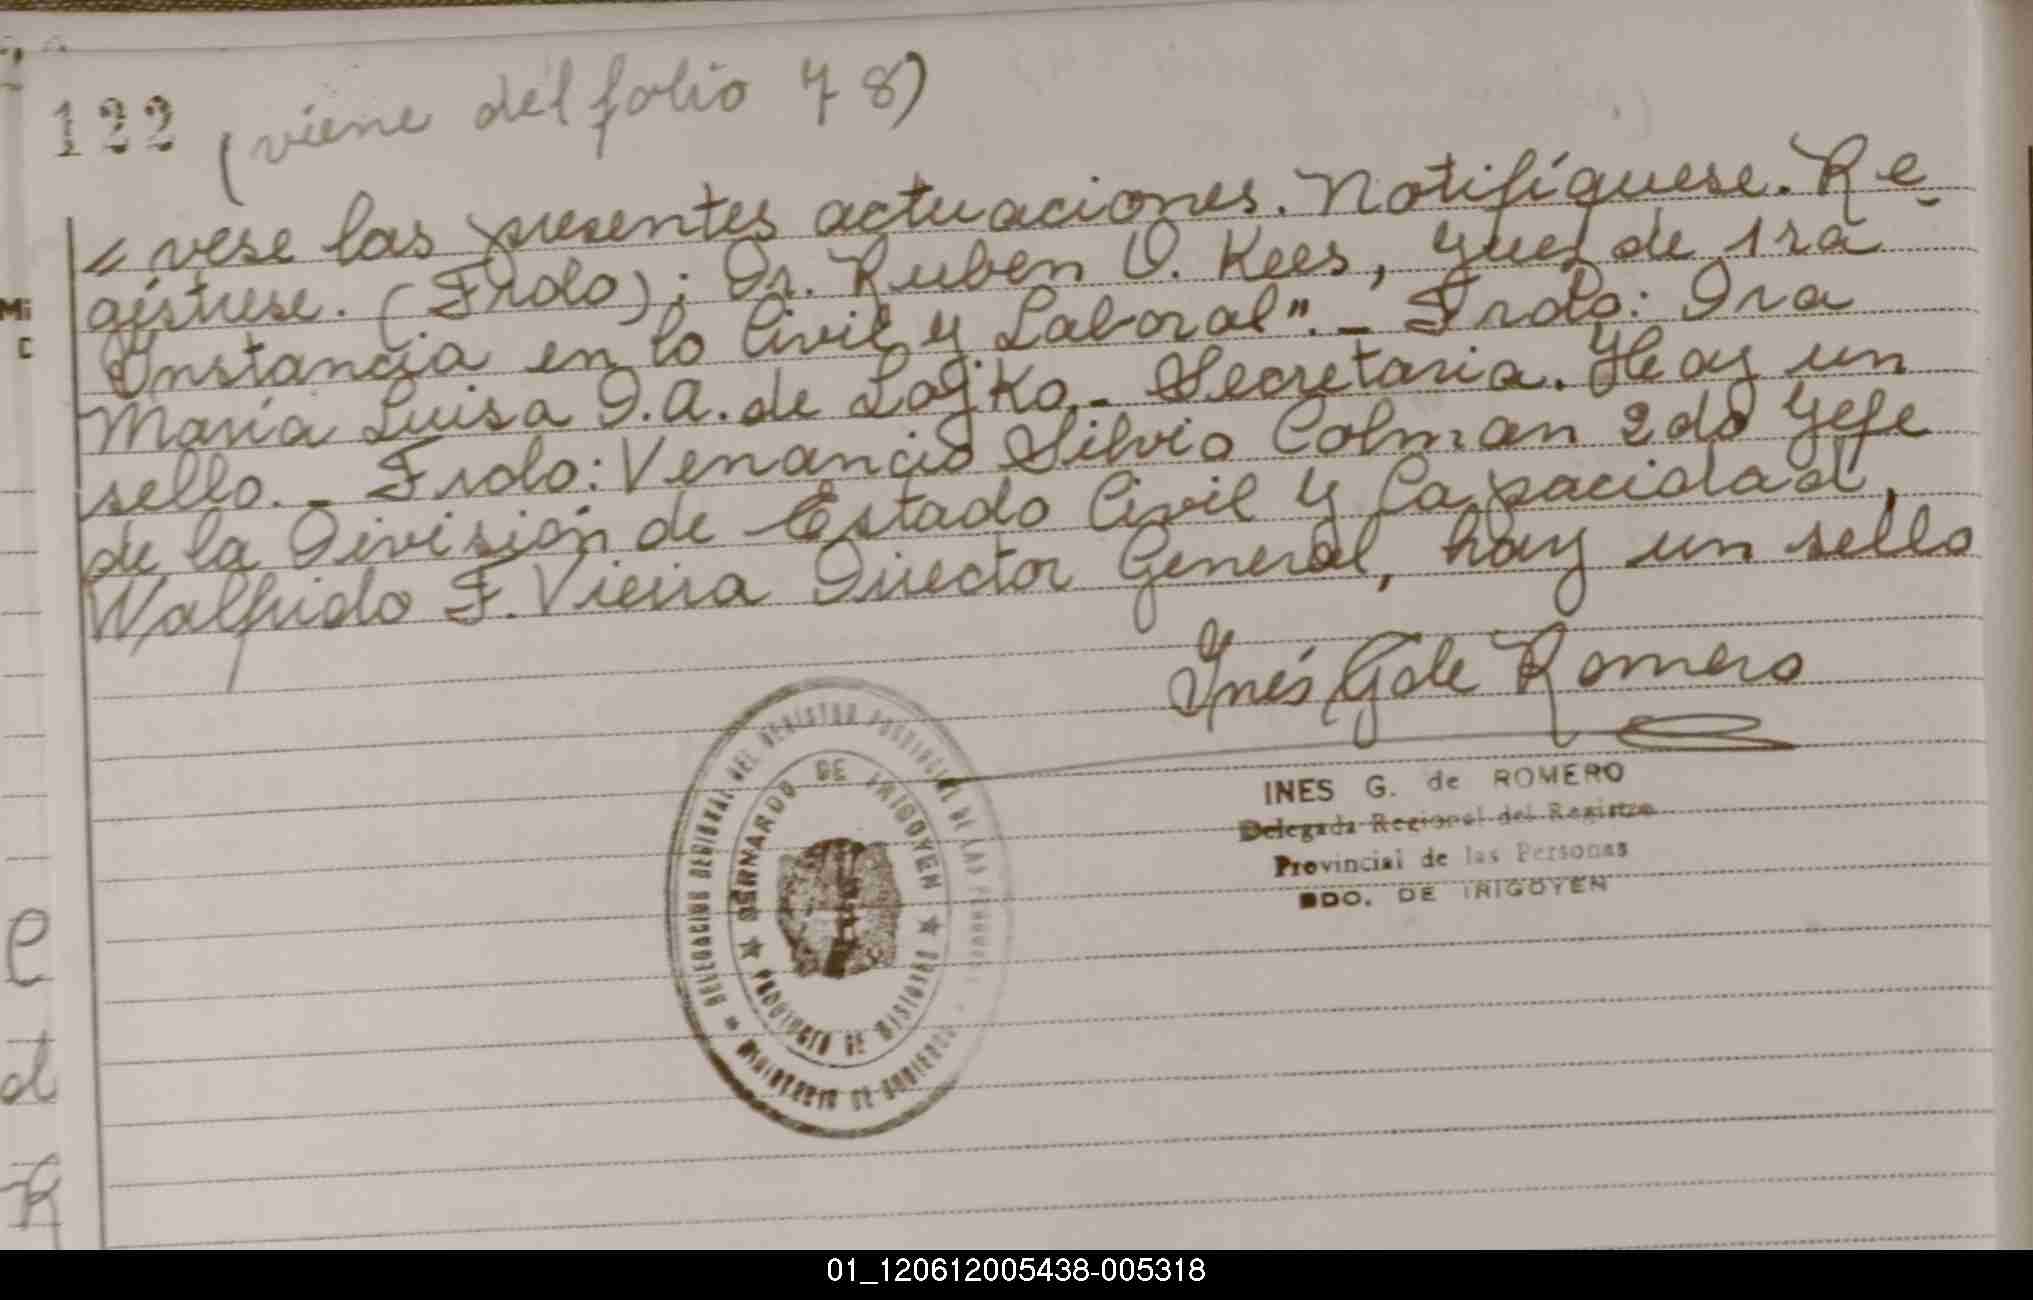 122 (viene del folio 78)
" vese las presentes actuaciones. Notifíquese. Re-
gístrese. (Frdo): Dr. Ruben O. Kees, Juez de 1ra
Instancia en lo Civil y Laboral".- Frdo: Dra
María Luisa D.A. de Lojko.- Secretaria. Hay un
sello.- Frdo: Venancio Silvio Colman 2do Jefe
de la División de Estado Civil y Capacidad,
Walfrido F. Vieira Director General, hay un sello
Inés G de Romero
INES G. de ROMERO
Delegada Regional del Registro
Provincial de las Personas
BDO. DE IRIGOYEN
DELEGACION REGIONAL DEL REGISTRO PROVINCIAL DE LAS PERSONAS
BERNARDO DE IRIGOYEN
★ PROVINCIA DE MISIONES ★
MINISTERIO DE GOBIERNO
Mi
C
e
d
R
01_120612005438-005318